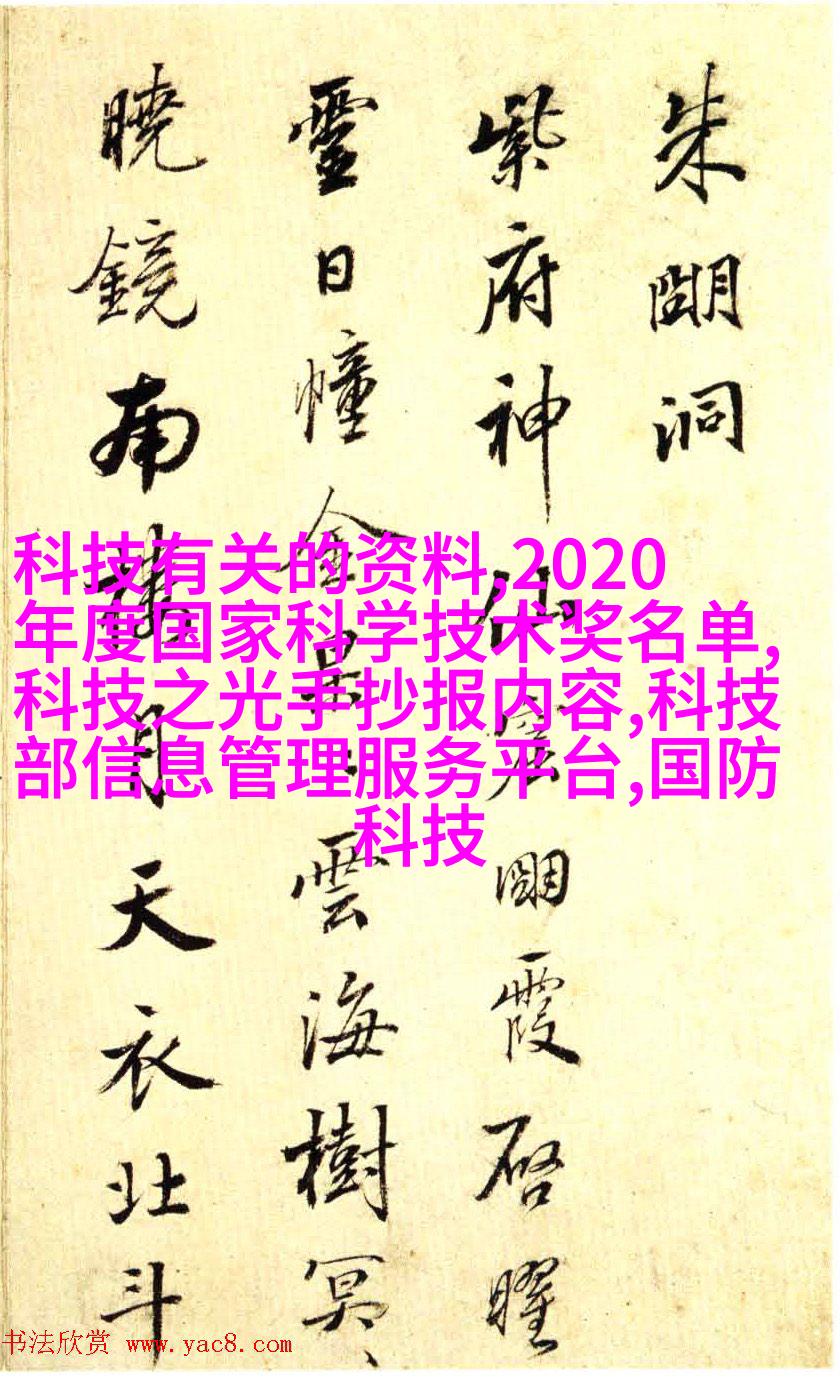 朱朙洞
紫府神仙窟朙霞啓曜
靈日幢金杲〻雲海樹冥〻
曉鏡南月天衣北斗
科技有关的资料,2020
年度国家科学技术奖名单,
科技之光手抄报内容,科技
部信息管理服务平台,国防
科技
书法欣赏 www.yac8.com